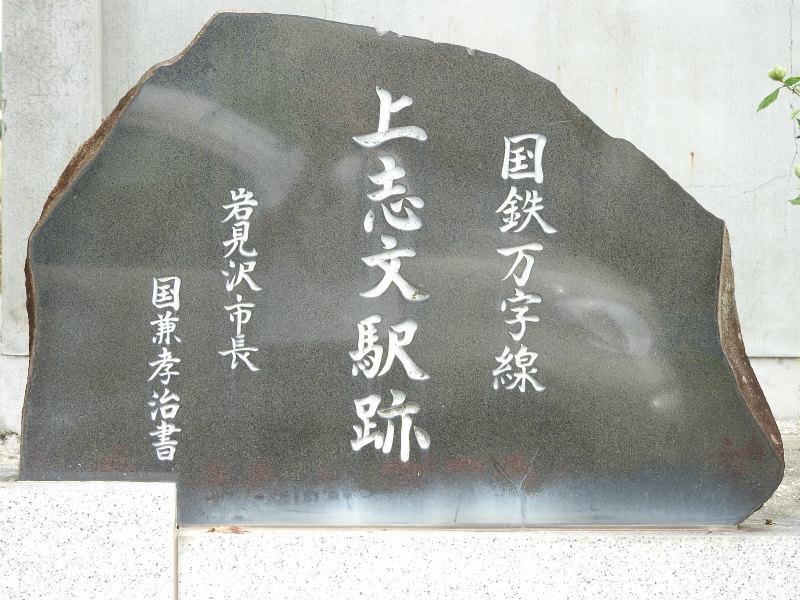 国鉄万字線
上志文駅跡
岩見沢市長
国兼孝治書